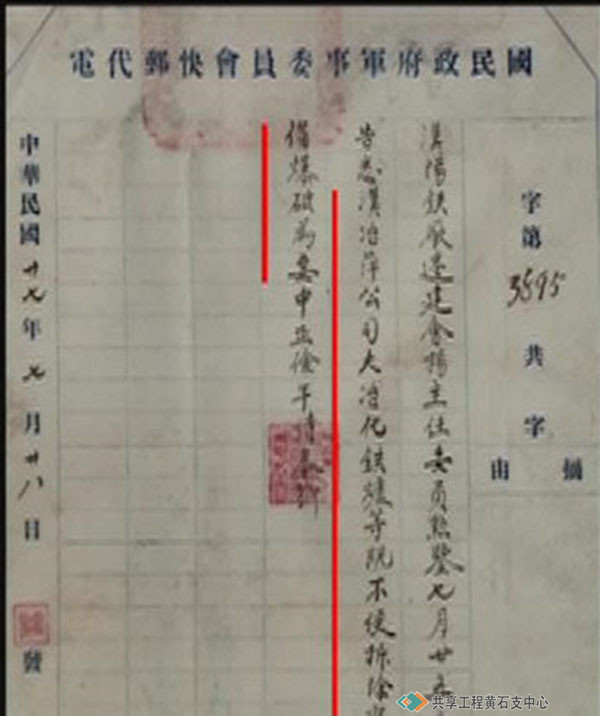 國民政府軍事委員會快郵代電
字第3595
共字
摘由
漢陽鉄厰遷建會楊主任委員勛鑒七月廿五
告悉漢冶萍公司大冶化鉄爐等既不便拆除
備爆破為要中正
中華民國廿七年七月廿八日發
共享工程黄石支中心